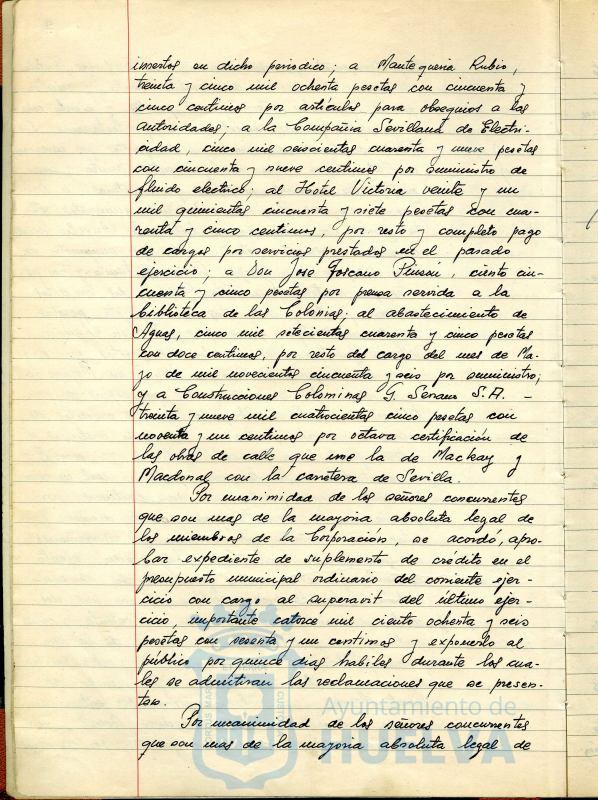 insertos en dicho periodico; a Mantequeria Rubio,
treinta y cinco mil ochenta pesetas con cincuenta y
cinco centimos por articulos para obsequios a las
autoridades; a la Compañia Sevillana de Electri-
cidad, cinco mil seiscientas cuarenta y nueve pesetas
con cincuenta y nueve centimos por suministro de
fluido electrico; al Hotel Victoria veinte y un
mil quinientas cincuenta y siete pesetas con cua-
renta y cinco centimos, por resto y completo pago
de cargos por servicios prestados en el pasado
ejercicio; a Don Jose Toscano Pinzón, ciento cin-
cuenta y cinco pesetas por prensa servida a la
biblioteca de las Colonias; al abastecimiento de
Aguas, cinco mil setecientas cuarenta y cinco pesetas
con doce centimos, por resto del cargo del mes de Ma-
yo de mil novecientos cincuenta y seis por suministro;
y a Construcciones Colominas G. Serrano S.A. -
treinta y nueve mil cuatrocientas cinco pesetas con
noventa y un centimos por octava certificación de
las obras de calle que une la de Mackay y
Macdonal con la carretera de Sevilla.
Por unanimidad de los señores concurrentes
que son mas de la mayoria absoluta legal de
los miembros de la Corporación, se acordó, apro-
bar expediente de suplemento de crédito en el
presupuesto municipal ordinario del corriente ejer-
cicio con cargo al superavit del último ejer-
cicio, importante catorce mil ciento ochenta y seis
pesetas con sesenta y un centimos y exponerlo al
público por quince dias habiles durante los cua-
les se admitiran las reclamaciones que se presen-
ten.
Por unanimidad de los señores concurrentes
que son mas de la mayoria absoluta legal de
Ayuntamiento de
HUELVA